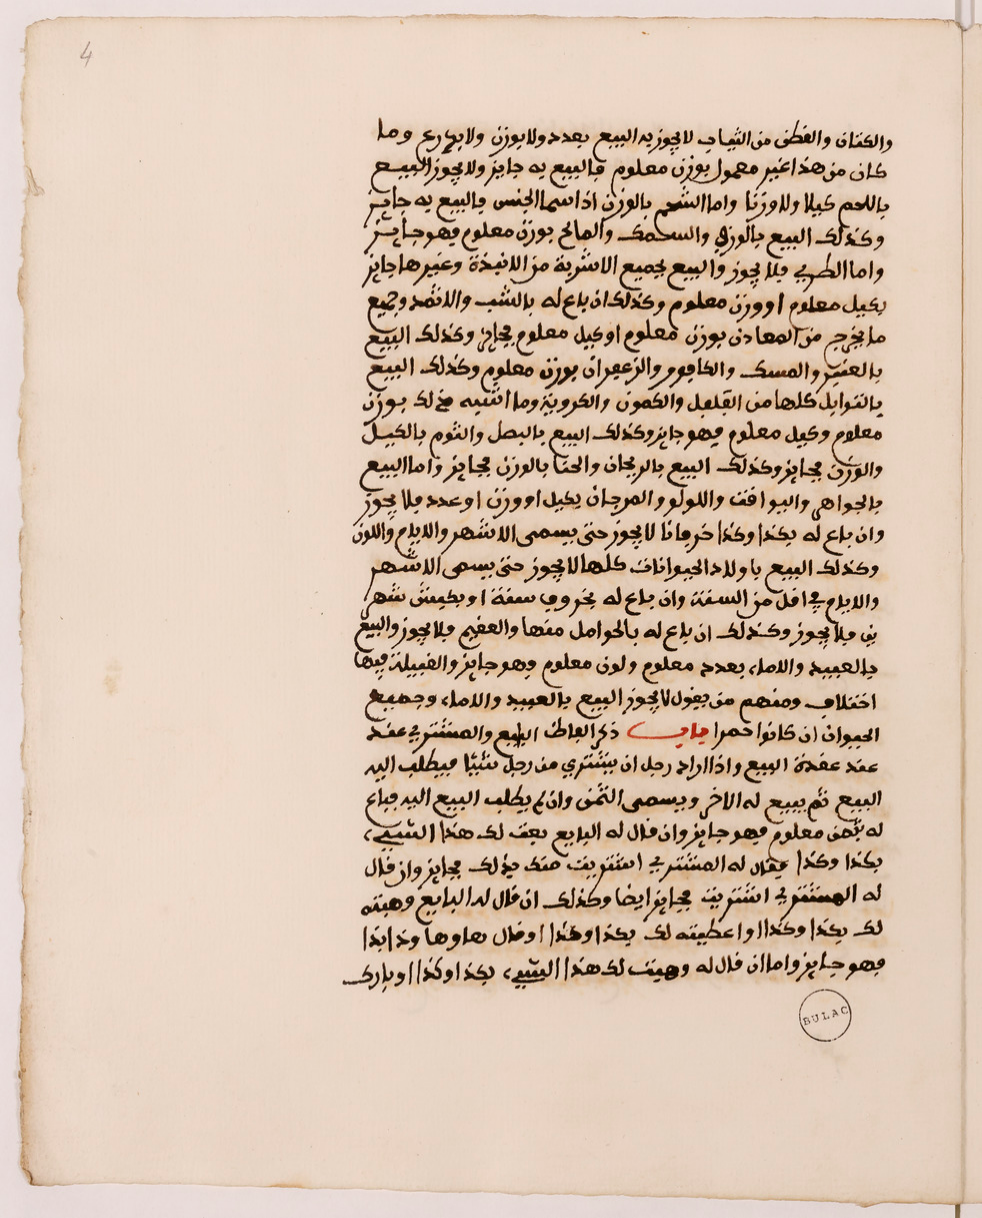 4
والكتان والقطن من الثياب لا يجوز به البيع بعدد ولا بوزن ولا بذرع وما
كان من هذا غير معمول بوزن معلوم فالبيع به جايز ولا يجوز البيع
باللحم كيلا ولا وزنا واما الشحم بالوزن اذا سما الجنس فالبيع به جايز
وكذلك البيع بالوزن والسمك والمالح بوزن معلوم فهو جايز
واما الطري فلا يجوز والبيع بجميع الاشربة من الانبذة وغيرها جايز
بكيل معلوم او وزن معلوم وكذلك ان باع له بالشب والاثمد وجميع
ما يخرج من المعادن بوزن معلوم او كيل معلوم فجايز وكذلك البيع
بالعنبر والمسك والكافور والزعفران بوزن معلوم وكذلك البيع
بالتوابل كلها من الفلفل والكمون والكروية وما اشبه ذلك بوزن
معلوم وكيل معلوم فهو جايز وكذلك البيع بالبصل والثوم بالكيل
والوزن فجايز وكذلك البيع بالريحان والحنا بالوزن فجايز واما البيع
بالجواهر واليواقت واللولو والمرجان بكيل او وزن او عدد فلا يجوز
وان باع له بكذا وكذا خرفانا لا يجوز حتى يسمى الاشهر والايام واللون
وكذلك البيع باولاد الحيوانات كلها لا يجوز حتى يسمى الاشهر
والايام في اقل من السنة وان باع له بخروف سنة او بكبش شهر
ين فلا يجوز وكذلك ان باع له بالحوامل منها والعقيم فلا يجوز والبيع
بالعبيد والاماء بعدد معلوم ولون معلوم فهو جايز والقبيلة فيها
اختلاف ومنهم من يقول لا يجوز البيع بالعبيد والاماء وجميع
الحيوان ان كانوا حمرا باب ذكر الفاظ البيع والمشتري عند
عند عقدة البيع واذا اراد رجل ان يشتري من رجل شيئا فيطلب اليه
البيع ثم يبيع له الاخر ويسمى الثمن وان لم يطلب البيع اليه فباع
له بثمن معلوم فهو جايز وان قال له البايع بعت لك هذا الشيء
بكذا وكذا فقال له المشتري اشتريت منك بذلك فجايز وان قال
له المشتري اشتريت فجايز ايضا وكذلك ان قال له البايع وهبته
لك بكذا وكذا او اعطيته لك بكذا وكذا او قال هاوها وذا بذا
فهو جايز واما ان قال له وهبت لك هذا الشيء بكذا وكذا او بارك
BULAC